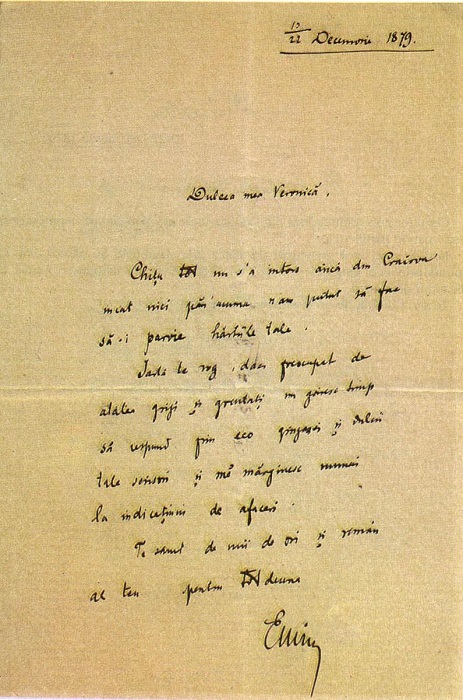 10/22 Decemvrie 1879.
Dulcea mea Veronică,
Chițu tot nu s'a întors încă din Craiova
încât nici păn'acuma n'am putut să fac
să-i parvie hârtiile tale.
Iartă te rog, dacă preocupat de
atâtea griji și greutăți nu găsesc timp
să respund prin eco gingașei și dulcii
tale scrisori și mĕ mărginesc numai
la indicețiuni de afaceri.
Te sărut de mii de ori și rămân
al tău pentru totdeauna
Emin